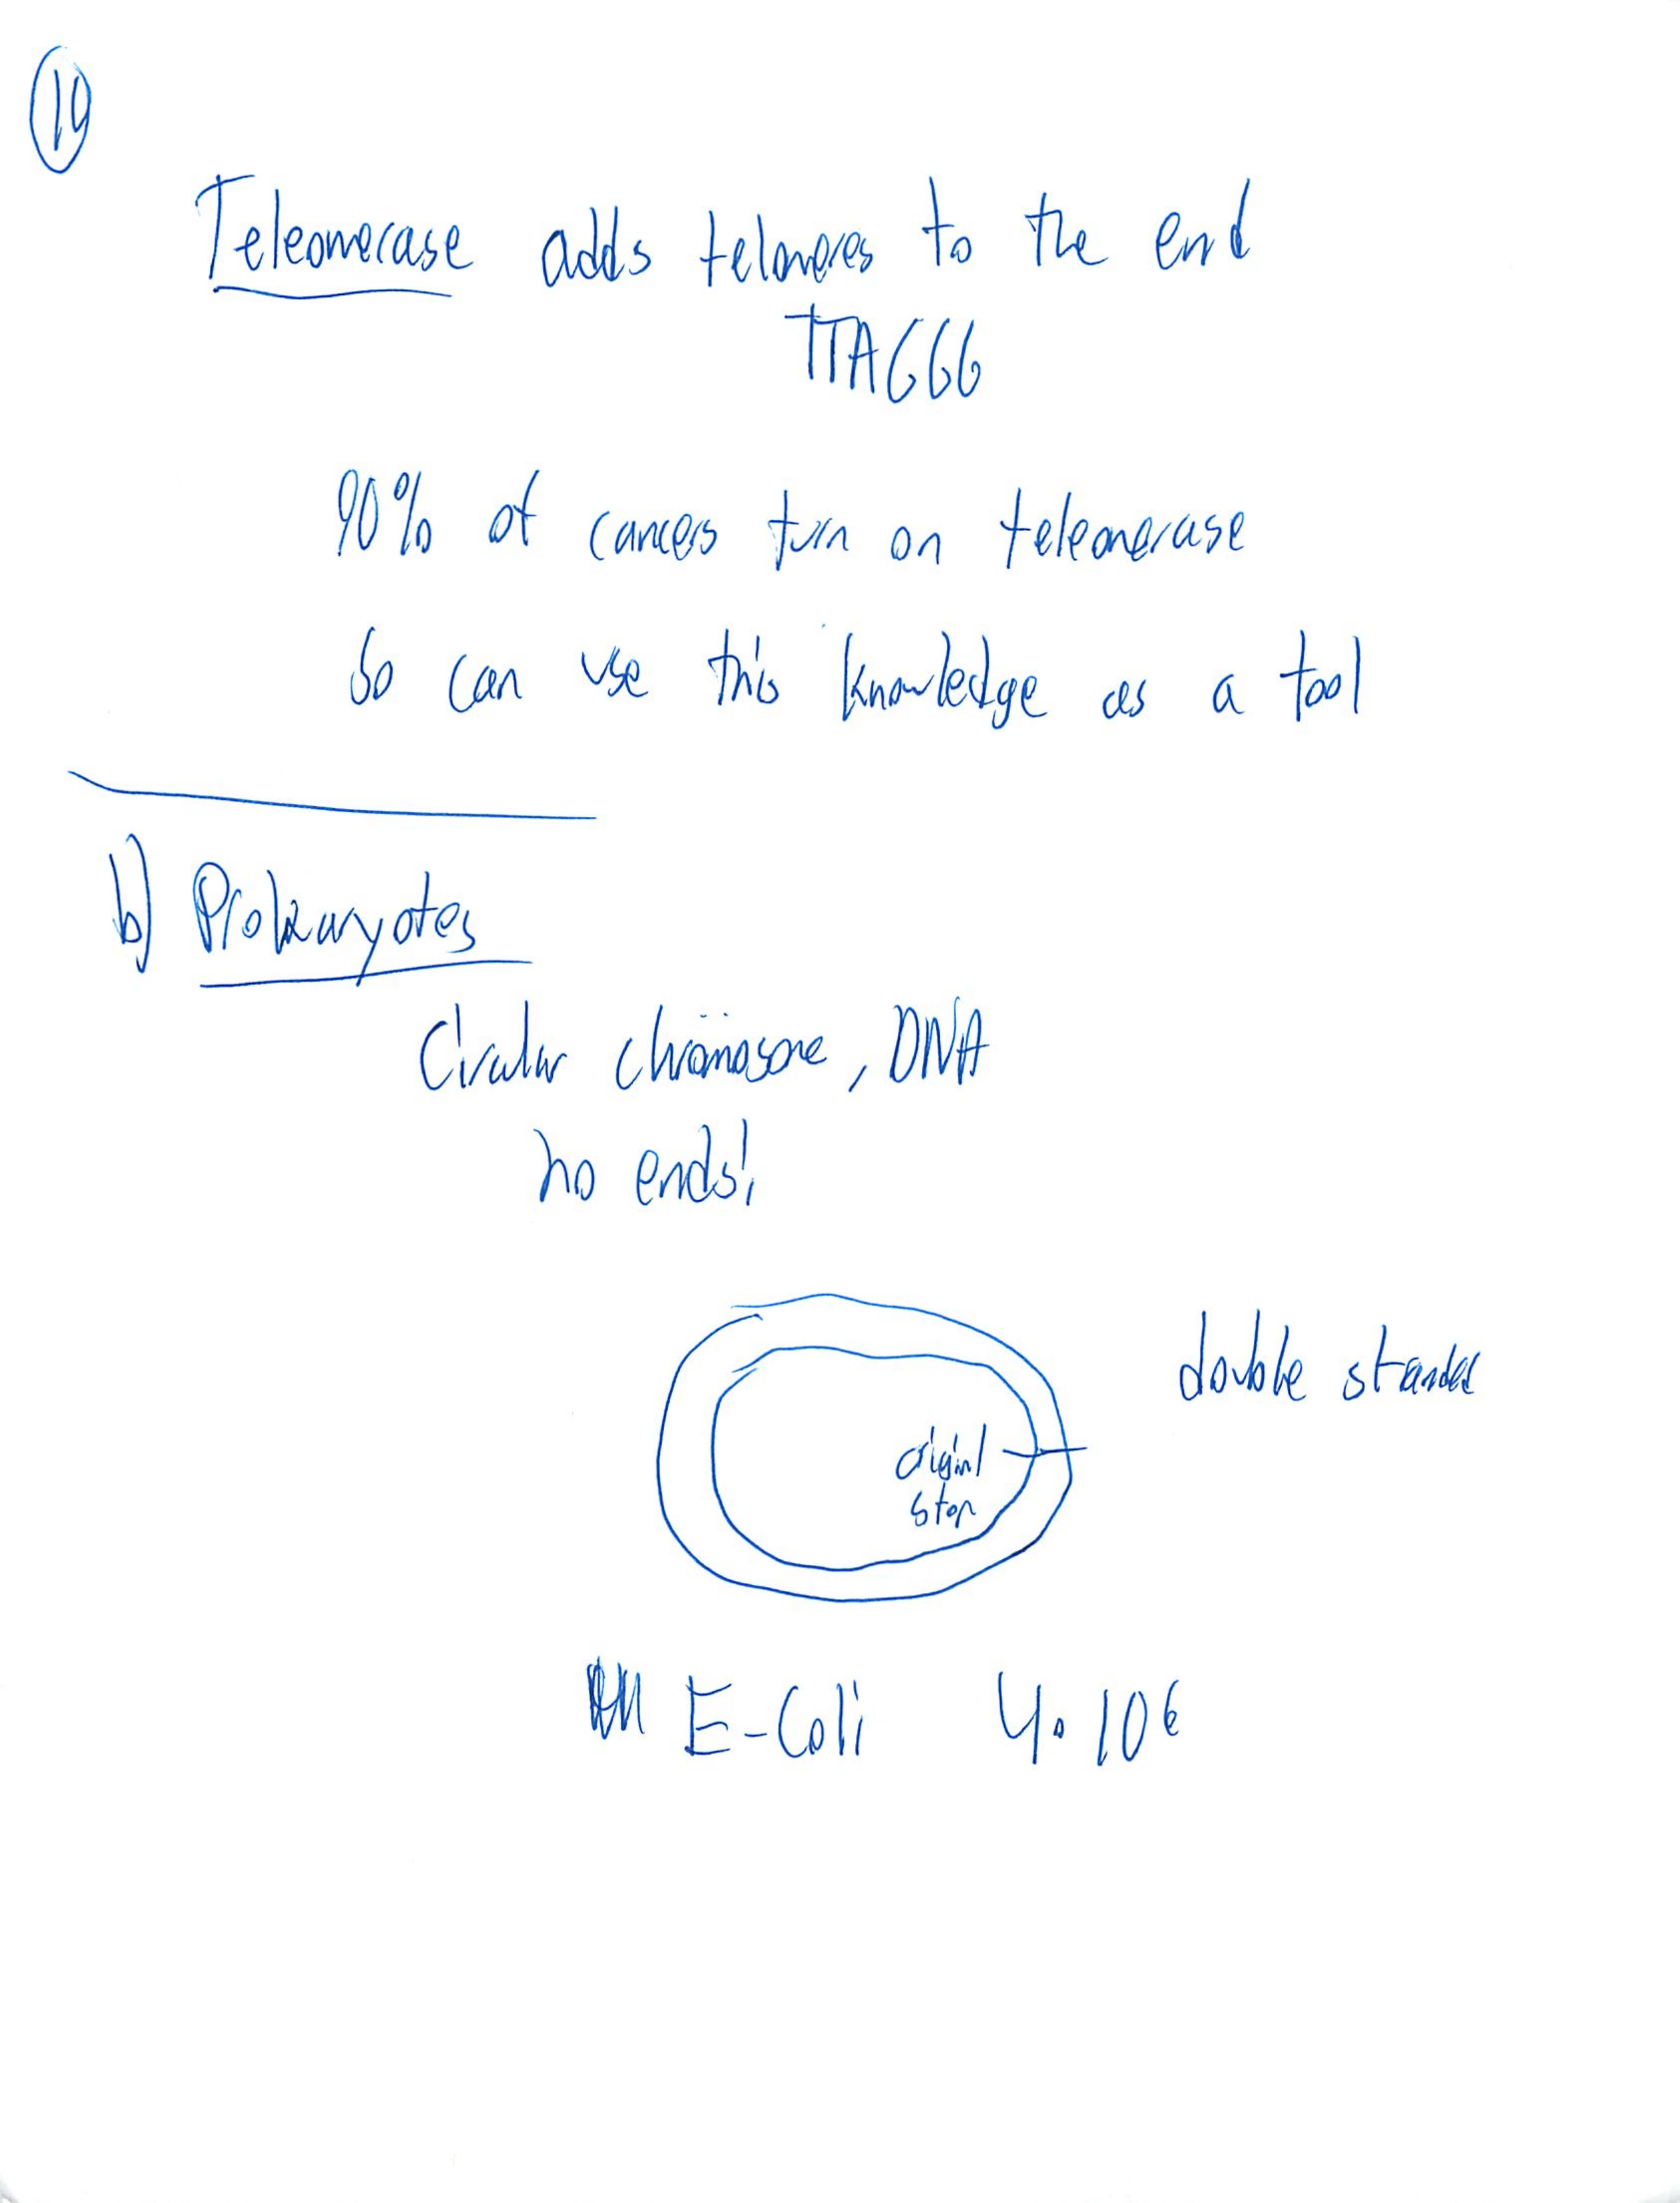 14
Teleomerase adds telomeres to the end
TTAGGG
90% of cancers turn on teleomerase
So can use this knowledge as a tool
b) Prokaryotes
Circular chromosome, DNA
no ends!
double strands
origin/
stop
E-Coli 4.10⁶